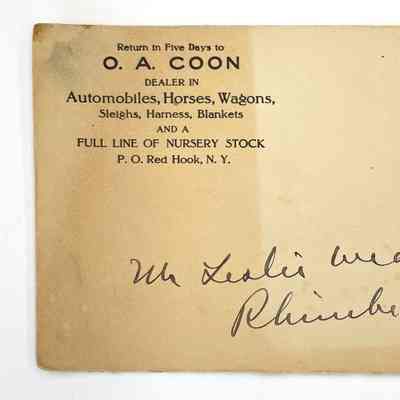 Return in Five Days to
O. A. COON
DEALER IN
Automobiles, Horses, Wagons,
Sleighs, Harness, Blankets
AND A
FULL LINE OF NURSERY STOCK
P. O. Red Hook, N. Y.
Mr Leslie